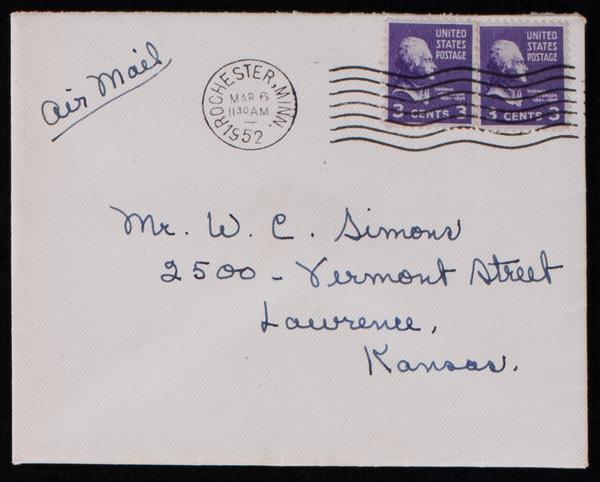 Air Mail
ROCHESTER, MINN.
MAR 6
11 30 AM
1952
UNITED
STATES
POSTAGE
THOMAS
JEFFERSON
1801-1809
3 CENTS 3
UNITED
STATES
POSTAGE
THOMAS
JEFFERSON
1801-1809
3 CENTS 3
Mr. W. C. Simons
2500 - Vermont Street
Lawrence,
Kansas.